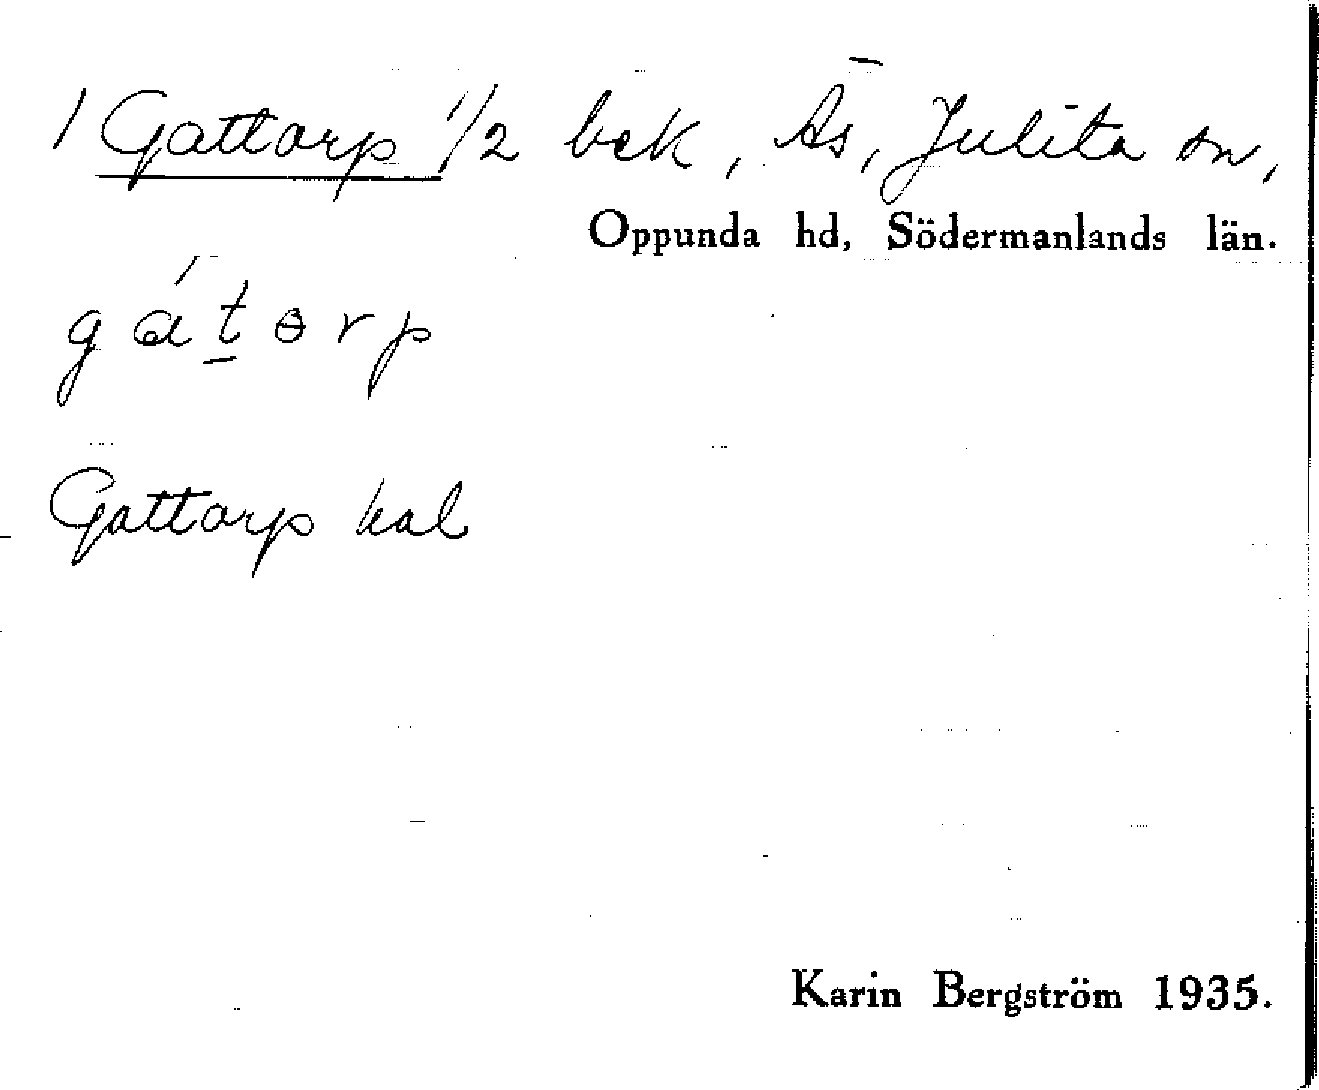 1 Gattorp 1/2 bek, Ås, Julita sn,
Oppunda hd, Södermanlands län.
gát̲ɵrp
Gattorp kal
Karin Bergström 1935.